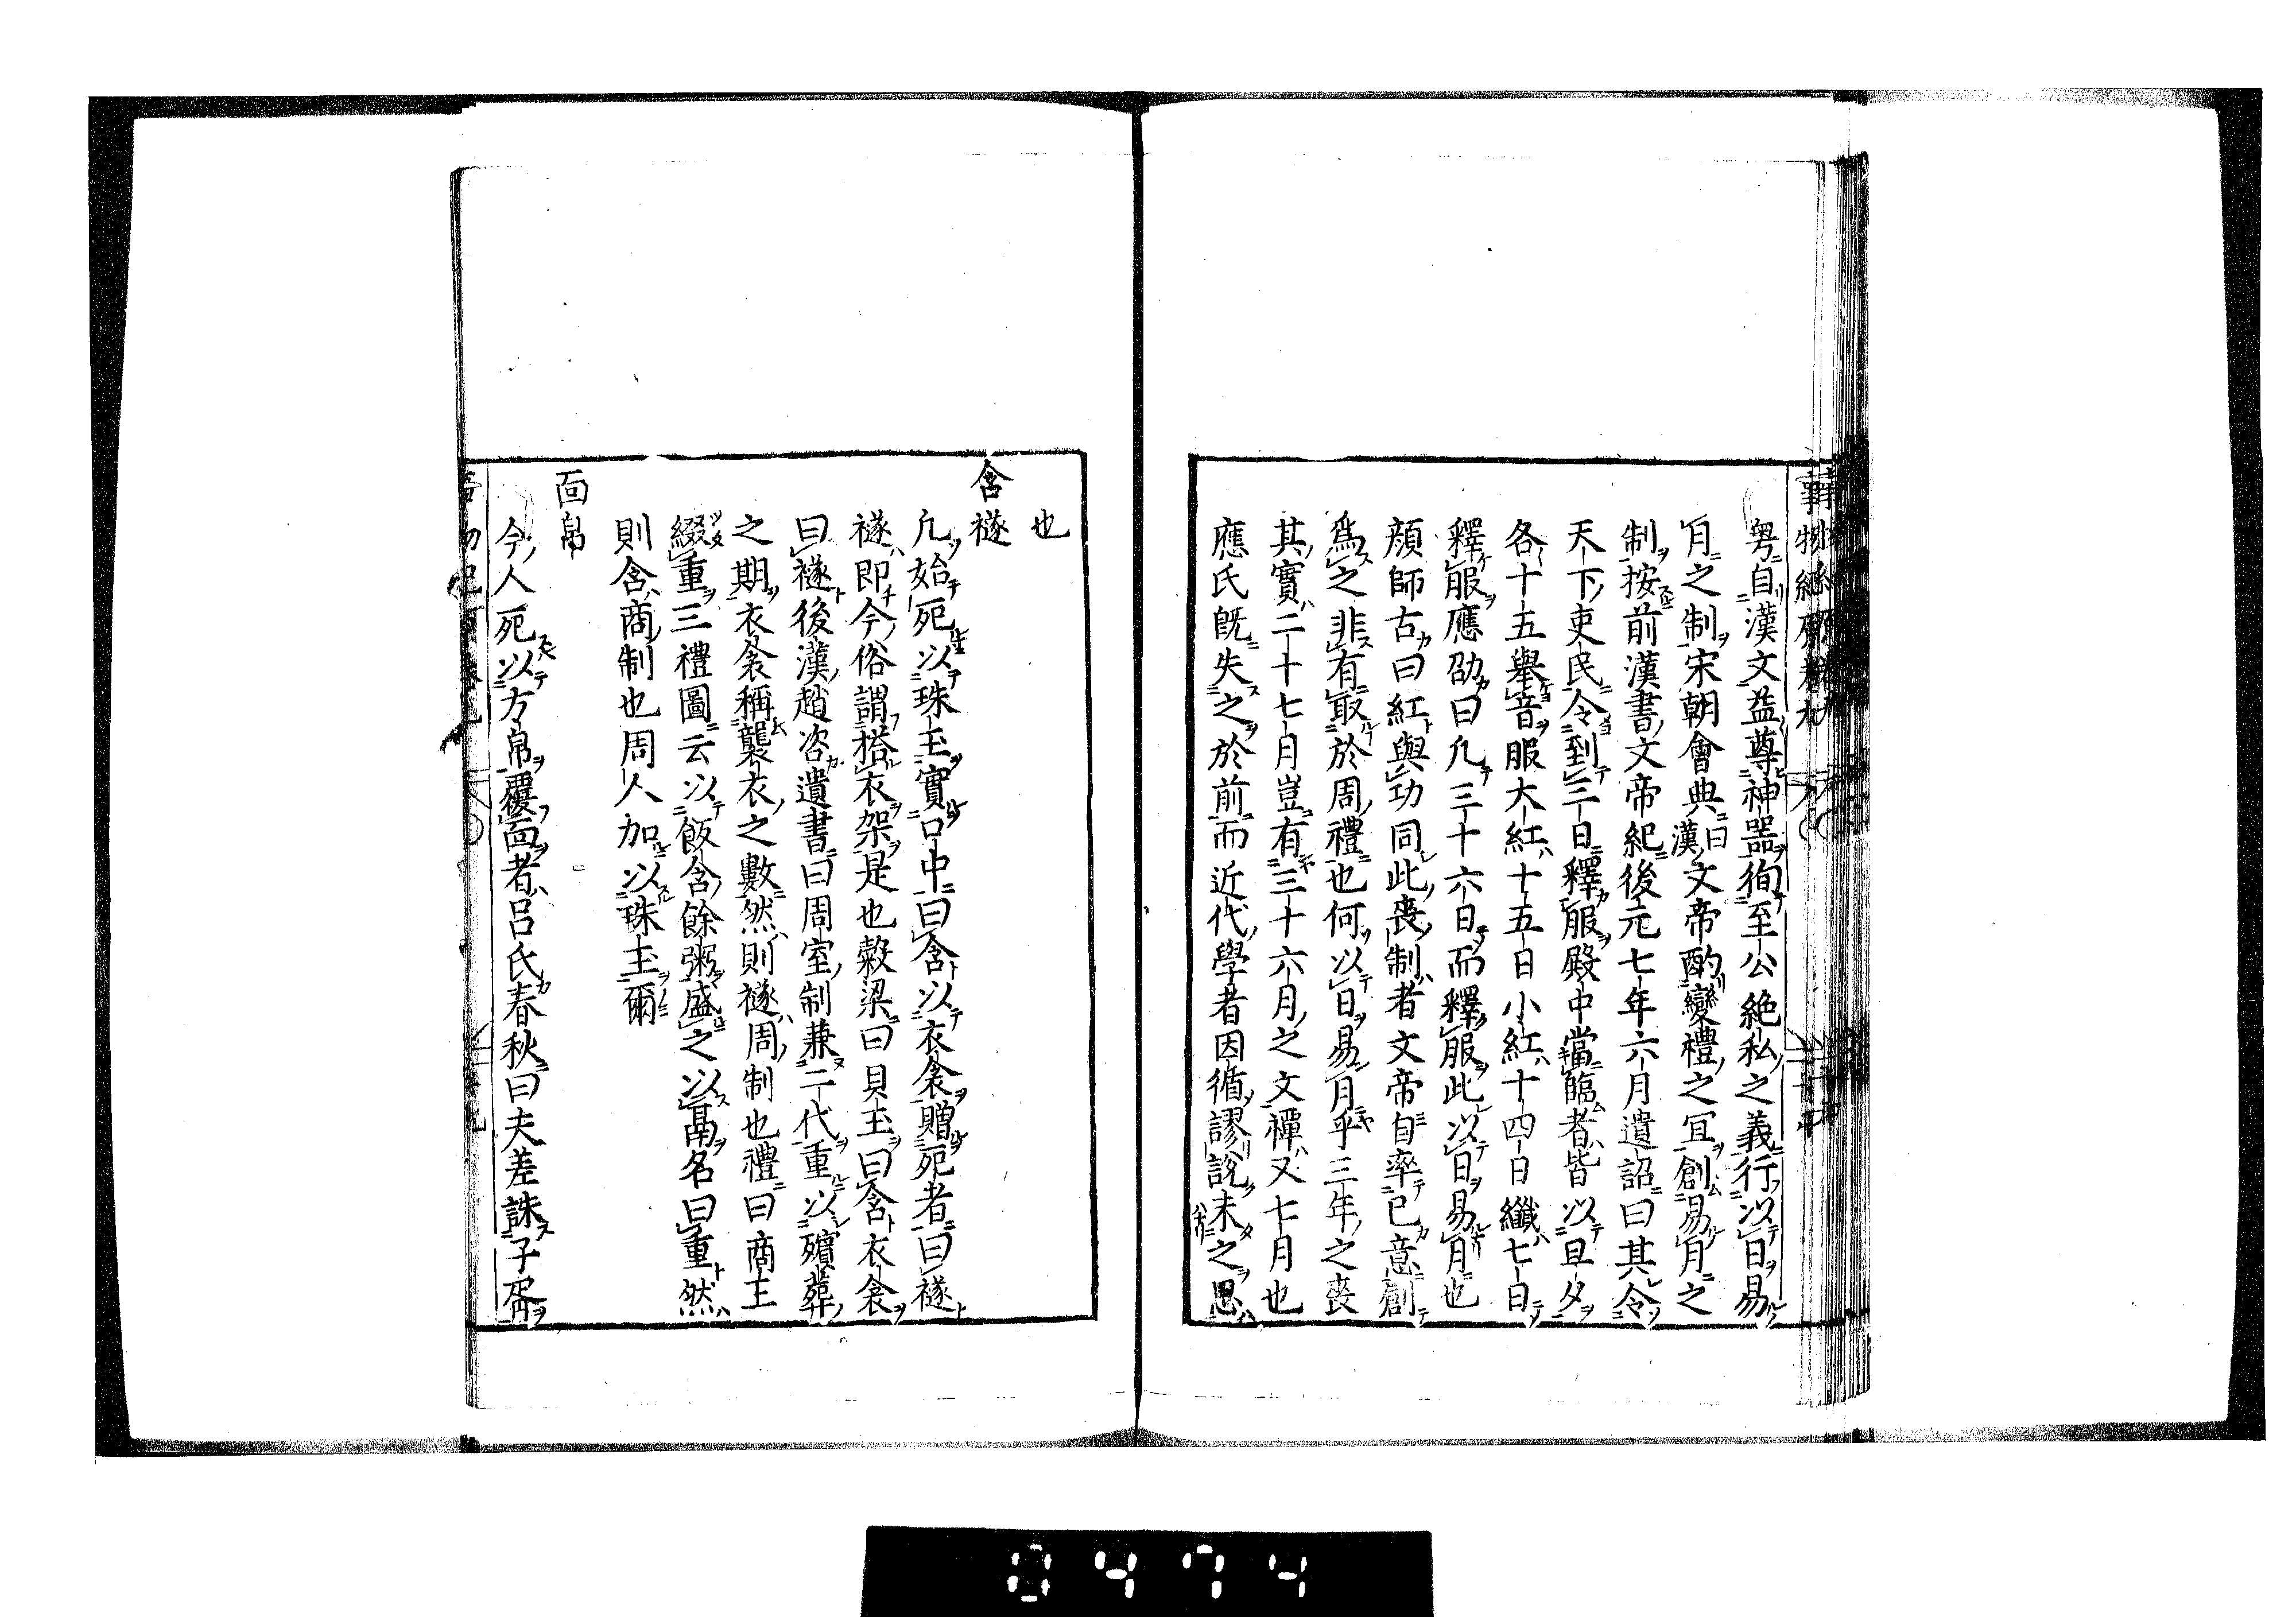 粤自漢文益尊神器徇至公絶私之義行以日易
月之制宋朝會典曰漢文帝酌變禮之宜創易月之
制按前漢書文帝紀後元七年六月遺詔曰其令
天下吏民令到三日釋服殿中當臨者皆以旦夕
各十五舉音服大紅十五日小紅十四日纖七日
釋服應劭曰凡三十六日而釋服此以日易月也
顔師古曰紅與功同此喪制者文帝自率已意創
爲之非有取於周禮也何以日易月乎三年之喪
其實二十七月豈有三十六月之文禫又七月也
應氏既失之於前而近代學者因循謬說未之思
也
含襚
凡始死以珠玉實口中曰含以衣衾贈死者曰襚
襚即今俗謂搭衣架是也穀梁曰貝玉曰含衣衾
曰襚後漢趙咨遺書曰周室制兼二代重以殯葬
之期衣衾稱襲衣之數然則襚周制也禮曰商主
綴重三禮圖云以飯含餘粥盛之以鬲名曰重然
則含商制也周人加以珠玉爾
面帛
今人死以方帛覆面者呂氏春秋曰夫差誅子胥
0474